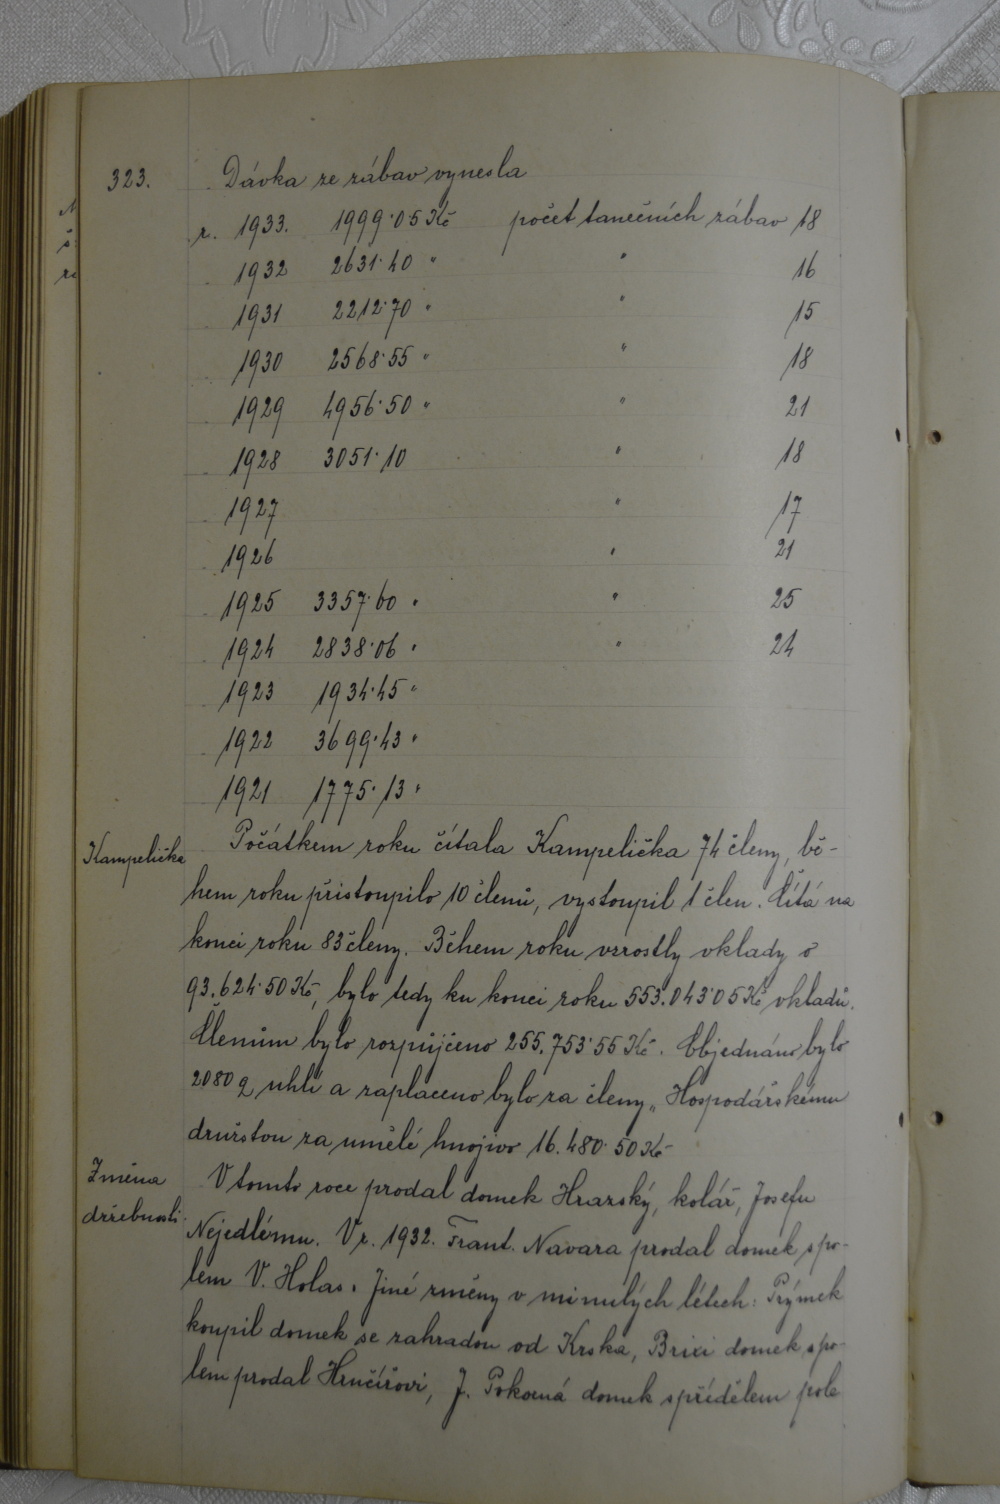 323. Dávka ze zábav vynesla
r. 1933. 1999·05 Kč počet tanečních zábav 18
1932 2631·40 " " 16
1931 2212·70 " " 15
1930 2568·55 " " 18
1929 4956·50 " " 21
1928 3051·10 " 18
1927 " 17
1926 " 21
1925 3357·60 " " 25
1924 2838·06 " " 24
1923 1934·45 "
1922 3699·43 "
1921 1775·13 "
Kampelička Počátkem roku čítala Kampelička 74 členy, bě-
hem roku přistoupilo 10 členů, vystoupil 1 člen. Čítá na
konci roku 83 členy. Během roku vzrostly vklady o
93.624·50 Kč, bylo tedy ku konci roku 553.043·05 Kč vkladů.
Členům bylo rozpůjčeno 255.753·55 Kč. Objednáno bylo
2080 q uhlí a zaplaceno bylo za členy „Hospodářskému
družstvu za umělé hnojivo 16.480·50 Kč
Změna V tomto roce prodal domek Hrazský, kolář, Josefu
držebnosti. Nejedlému. V r. 1932. Frant. Navara prodal domek s po-
lem V. Holas. Jiné změny v minulých létech: Prýmek
koupil domek se zahradou od Krska, Brixi domek s po-
lem prodal Hrnčířovi, J. Pokorná domek s přídělem pole